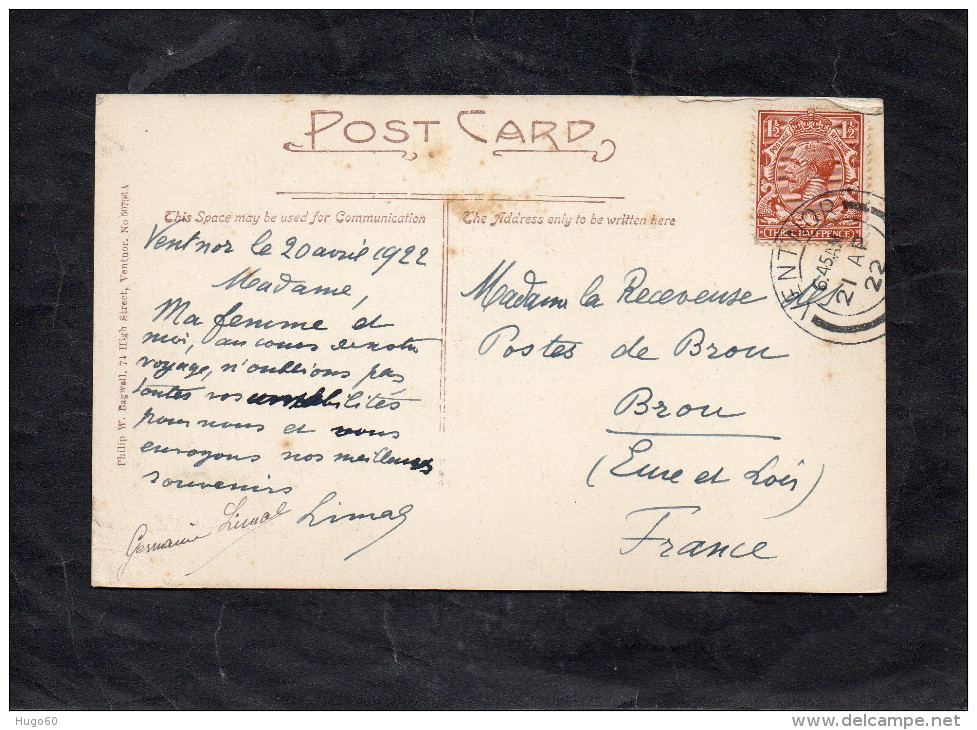 POST CARD
This Space may be used for Communication
The Address only to be written here
Ventnor le 20 avril 1922
Madame,
Ma femme et
moi, au cours de notre
voyage, n'oublions pas
toutes vos amabilités
pour nous et vous
envoyons nos meilleurs
souvenirs
Limal
Germaine Limal
Madame la Receveuse des
Postes de Brou
Brou
(Eure et Loir)
France
Philip W. Bagwell, 74 High Street, Ventnor. No 50796A
1½ 1½
POSTAGE REVENUE
THREE HALFPENCE
VENTNOR
6.45AM
21 AP
22
Hugo60
www.delcampe.net